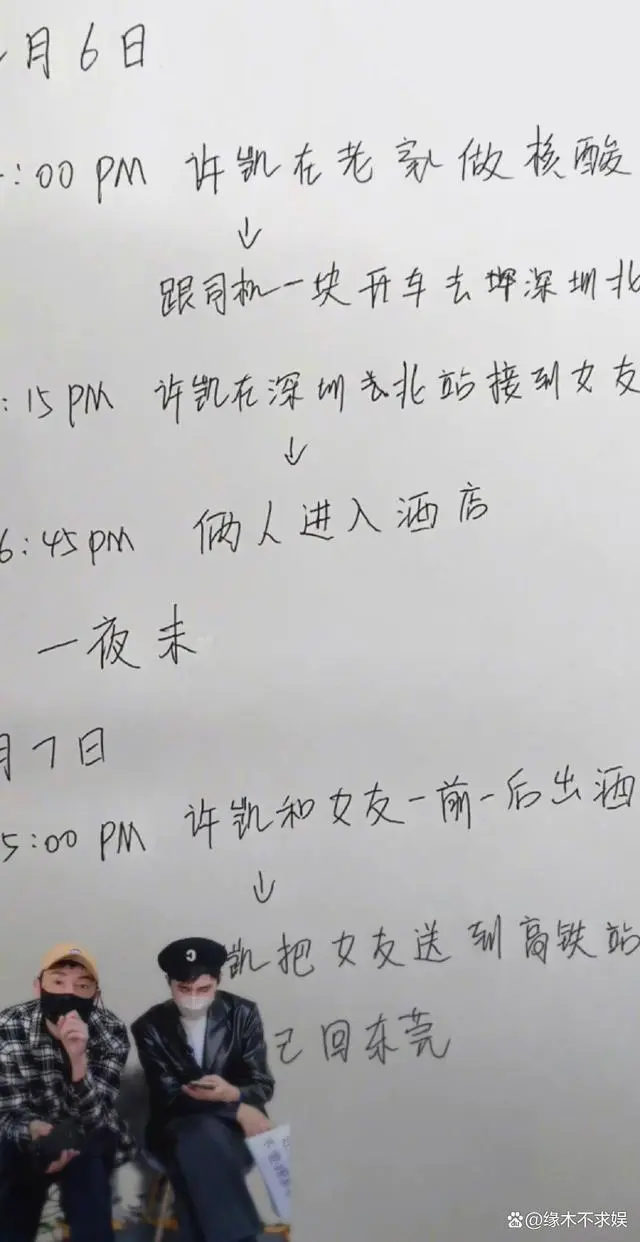 月6日
:00 PM 许凯在老家做核酸
↓
跟司机一块开车去深圳北
:15 PM 许凯在深圳北站接到女友
↓
6:45 PM 俩人进入酒店
一夜未
月7日
5:00 PM 许凯和女友一前一后出酒
↓
凯把女友送到高铁站
己回东莞
@缘木不求娱